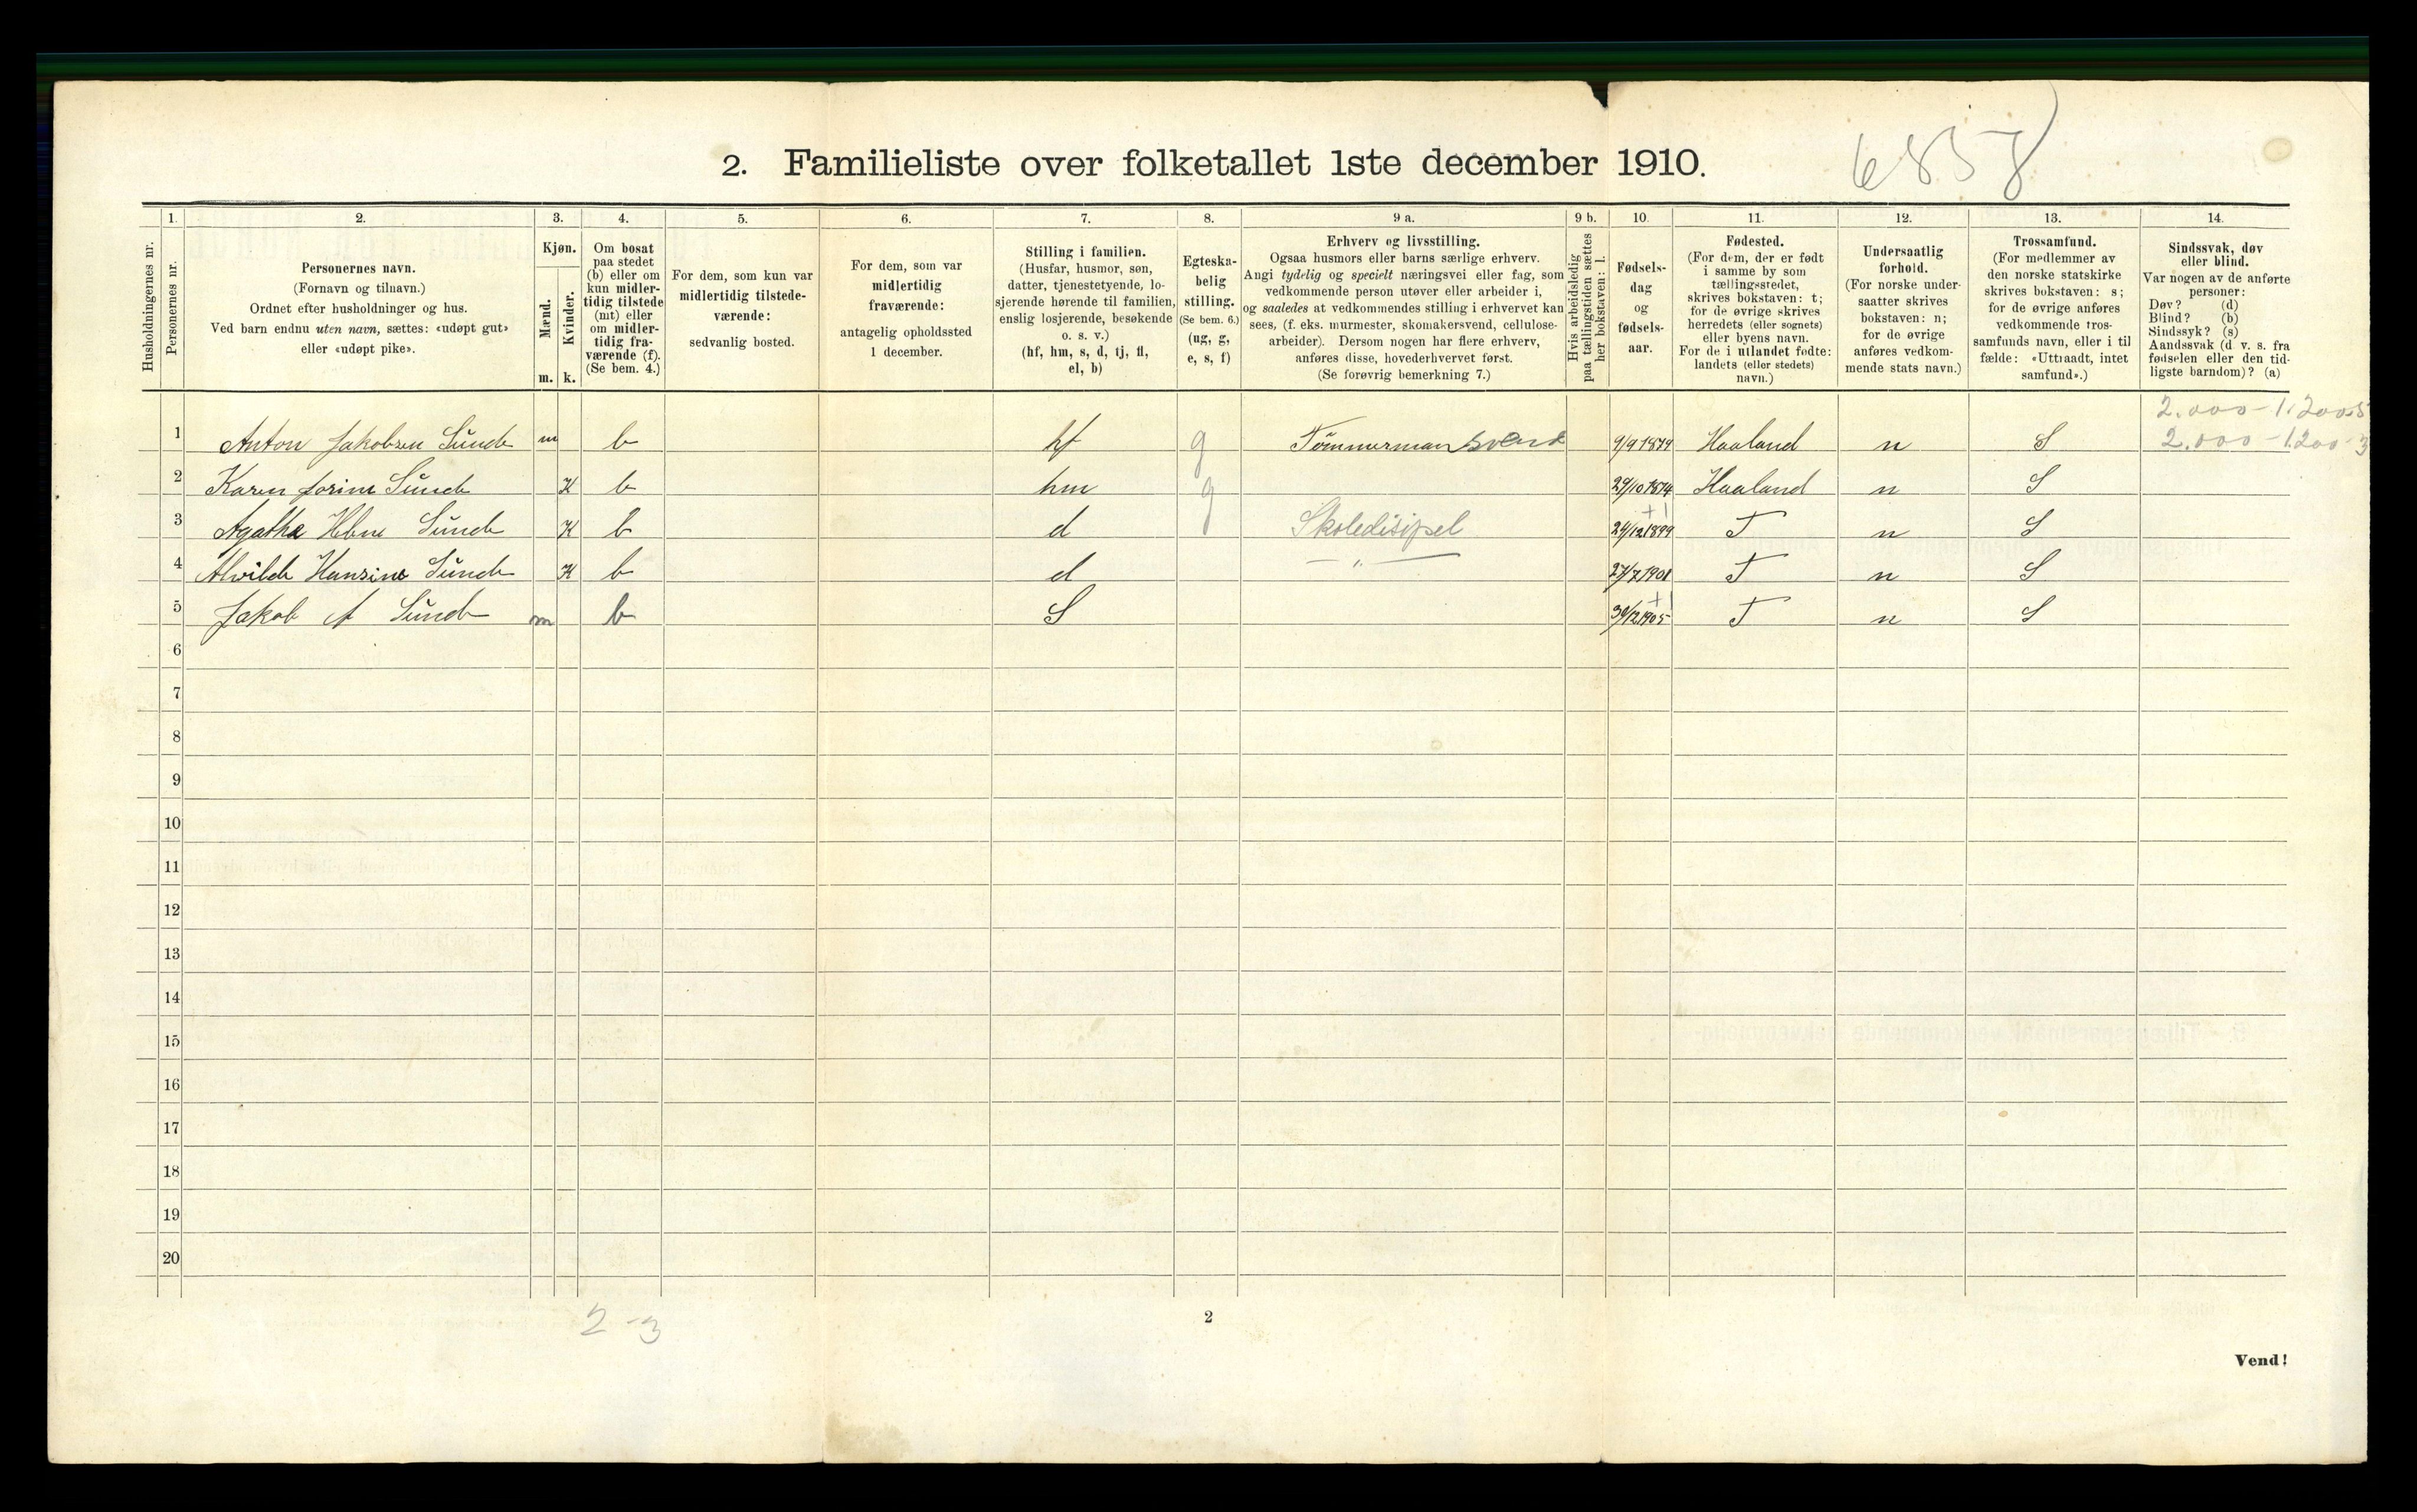 6858
2. Familieliste over folketallet 1ste december 1910.
1. 2. 3. 4. 5. 6. 7. 8. 9 a. 9 b. 10. 11. 12. 13. 14.
Husholdningernes nr.
Personernes nr.
Personernes navn.
(Fornavn og tilnavn.)
Ordnet efter husholdninger og hus.
Ved barn endnu uten navn, sættes: «udøpt gut»
eller «udøpt pike».
Kjøn.
Mænd.
Kvinder.
m. k.
Om bosat
paa stedet
(b) eller om
kun midler-
tidig tilstede
(mt) eller
om midler-
tidig fra-
værende (f).
(Se bem. 4.)
For dem, som kun var
midlertidig tilstede-
værende:
sedvanlig bosted.
For dem, som var
midlertidig
fraværende:
antagelig opholdssted
1 december.
Stilling i familien.
(Husfar, husmor, søn,
datter, tjenestetyende, lo-
sjerende hørende til familien,
enslig losjerende, besøkende
o. s. v.)
(hf, hm, s, d, tj, fl,
el, b)
Egteska-
belig
stilling.
(Se bem. 6.)
(ug, g,
e, s, f)
Erhverv og livsstilling.
Ogsaa husmors eller barns særlige erhverv.
Angi tydelig og specielt næringsvei eller fag, som
vedkommende person utøver eller arbeider i,
og saaledes at vedkommendes stilling i erhvervet kan
sees, (f. eks. murmester, skomakersvend, cellulose-
arbeider). Dersom nogen har flere erhverv,
anføres disse, hovederhvervet først.
(Se forøvrig bemerkning 7.)
Hvis arbeidsledig
paa tællingstiden sættes
her bokstaven: l.
Fødsels-
dag
og
fødsels-
aar.
Fødested.
(For dem, der er født
i samme by som
tællingsstedet,
skrives bokstaven: t;
for de øvrige skrives
herredets (eller sognets)
eller byens navn.
For de i utlandet fødte:
landets (eller stedets)
navn.)
Undersaatlig
forhold.
(For norske under-
saatter skrives
bokstaven: n;
for de øvrige
anføres vedkom-
mende stats navn.)
Trossamfund.
(For medlemmer av
den norske statskirke
skrives bokstaven: s;
for de øvrige anføres
vedkommende tros-
samfunds navn, eller i til
fælde: «Uttraadt, intet
samfund».)
Sindssvak, døv
eller blind.
Var nogen av de anførte
personer:
Døv? (d)
Blind? (b)
Sindssyk? (s)
Aandssvak (d. v. s. fra
fødselen eller den tid-
ligste barndom)? (a)
2.000 - 1.200.5
1 Anton Jakobsen Sunde m b hf g Tømmermansvend 9/9 1879 Haaland n S 2.000 - 1.200-3
2 Karen Jorine Sunde K b hm g 29/10 1874 Haaland n S
3 Agatha Sunde K b d Skoledisipel 24/12 1899 T n S
4 Alvilde Hansine Sunde K b d — „ — 27/7 1901 T n S
5 Jakob A Sunde m b S 30/12 1905 T n S
6
7
8
9
10
11
12
13
14
15
16
17
18
19
20
2-3
2
Vend!